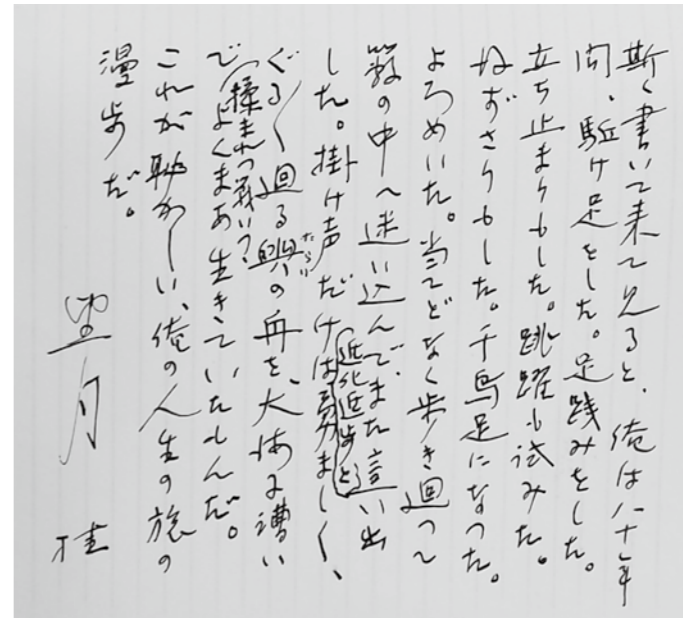 斯く書いて来て見ると、俺は八十年
間、駈け足をした。足踏みをした。
立ち止まりもした。跳躍も試みた。
ねずさりもした。千鳥足になった。
よろめいた。当てどなく歩き廻って
藪の中へ迷い込んで、また這い出
した。掛け声だけは勇ましく、
近代近歩と
ぐる〱廻る輿の舟を、大海に漕い
たらい
で、よくまあ生きていたもんだ。
揉まれつ戦いつ
これが恥かしい、俺の人生の旅の
漫歩だ。
望月 桂